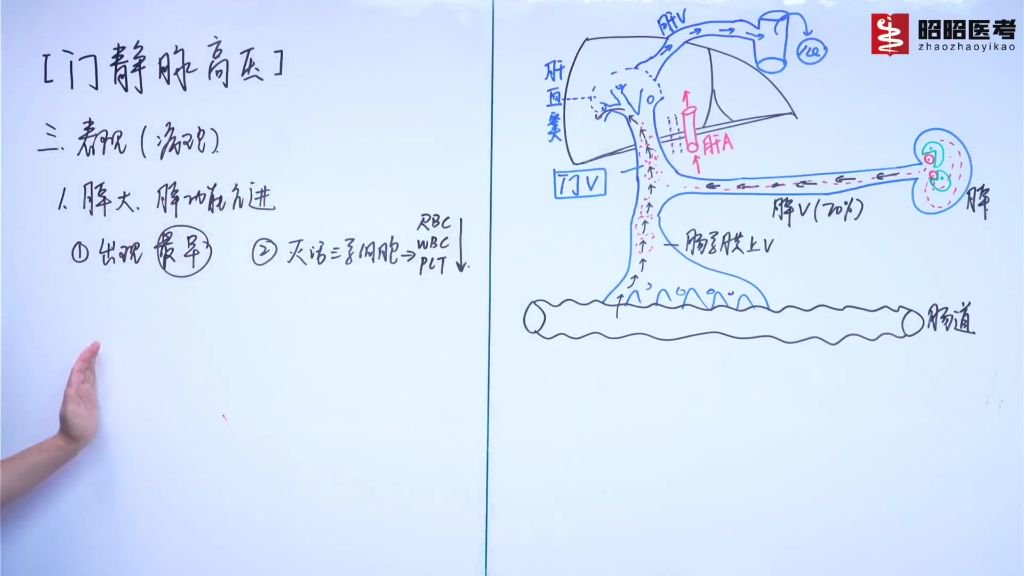 [门静脉高压]
三. 表现(病理)
1. 脾大、脾功能亢进
① 出现最早
② 灭活三系细胞→RBC
WBC
PLT
昭昭医考
zhaozhaoyikao
肝V
肝血窦
肝A
门V
脾V(20%)
脾
肠系膜上V
肠道